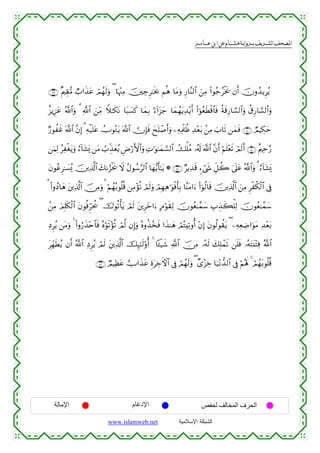 المصحف الشريف برواية هشام عن ابن عامر
يُرِيدُونَ أَن يَخْرُجُواْ مِنَ ٱلنَّارِ وَمَا هُم بِخَٰرِجِينَ مِنْهَا ۖ وَلَهُمْ عَذَابٌ مُّقِيمٌ
وَٱلسَّارِقُ وَٱلسَّارِقَةُ فَٱقْطَعُوٓاْ أَيْدِيَهُمَا جَزَآءَۢ بِمَا كَسَبَا نَكَٰلًا مِّنَ ٱللَّهِ ۗ وَٱللَّهُ عَزِيزٌ
حَكِيمٌ فَمَن تَابَ مِنۢ بَعْدِ ظُلْمِهِۦ وَأَصْلَحَ فَإِنَّ ٱللَّهَ يَتُوبُ عَلَيْهِ ۗ إِنَّ ٱللَّهَ غَفُورٌ
رَّحِيمٌ أَلَمْ تَعْلَمْ أَنَّ ٱللَّهَ لَهُۥ مُلْكُ ٱلسَّمَٰوَٰتِ وَٱلْأَرْضِ يُعَذِّبُ مَن يَشَآءُ وَيَغْفِرُ لِمَن
يَشَآءُ ۗ وَٱللَّهُ عَلَىٰ كُلِّ شَىْءٍ قَدِيرٌ ۞ يَٰٓأَيُّهَا ٱلرَّسُولُ لَا يَحْزُنكَ ٱلَّذِينَ يُسَٰرِعُونَ
فِى ٱلْكُفْرِ مِنَ ٱلَّذِينَ قَالُوٓاْ ءَامَنَّا بِأَفْوَٰهِهِمْ وَلَمْ تُؤْمِن قُلُوبُهُمْ ۛ وَمِنَ ٱلَّذِينَ هَادُواْ ۛ
سَمَّٰعُونَ لِلْكَذِبِ سَمَّٰعُونَ لِقَوْمٍ ءَاخَرِينَ لَمْ يَأْتُوكَ ۖ يُحَرِّفُونَ ٱلْكَلِمَ مِنۢ
بَعْدِ مَوَاضِعِهِۦ ۖ يَقُولُونَ إِنْ أُوتِيتُمْ هَٰذَا فَخُذُوهُ وَإِن لَّمْ تُؤْتَوْهُ فَٱحْذَرُواْ ۚ وَمَن يُرِدِ
ٱللَّهُ فِتْنَتَهُۥ فَلَن تَمْلِكَ لَهُۥ مِنَ ٱللَّهِ شَيْـًٔا ۚ أُوْلَٰٓئِكَ ٱلَّذِينَ لَمْ يُرِدِ ٱللَّهُ أَن يُطَهِّرَ
قُلُوبَهُمْ ۚ لَهُمْ فِى ٱلدُّنْيَا خِزْىٌ ۖ وَلَهُمْ فِى ٱلْأَخِرَةِ عَذَابٌ عَظِيمٌ
الحرف المخالف لحفص الإدغام الإمالة
الشبكة الإسلامية www.islamweb.net